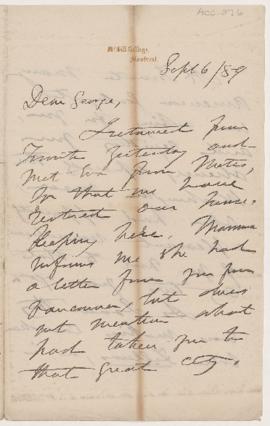 ACC-876
McGill College,
Montreal.
Sept 6/89
Dear George,
I returned from
Toronto yesterday and
met Eva from Metis,
so that we have
restored our house-
keeping here. Mamma
informs me she had
a letter from you from
Vancouver, but does
not mention what
had taken you to
that great city.